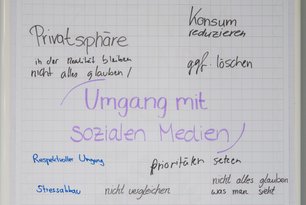 Konsum
reduzieren
Privatsphäre
in der Realität bleiben
nicht alles glauben!
ggf. löschen
Umgang mit
sozialen Medien
Respektvoller Umgang
Prioritäten setzen
Stressabbau
nicht vergleichen
nicht alles glauben
was man sieht